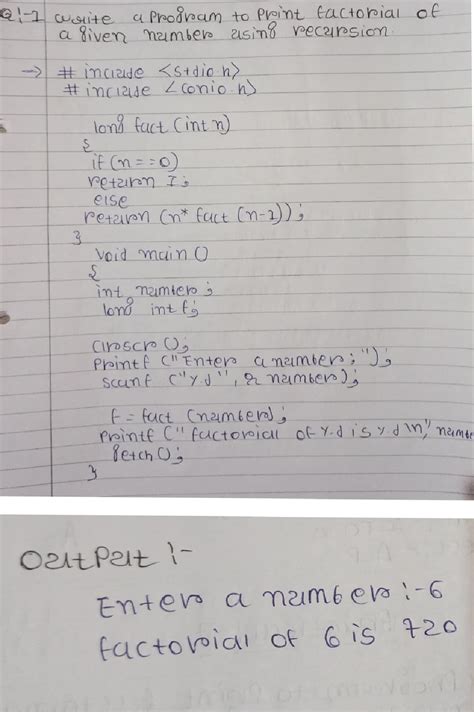 Q:-1 write a program to print factorial of
a given number using recursion.
→ # include <stdio.h>
# include <conio.h>
long fact (int n)
{
if (n = = 0)
return 1;
else
return (n* fact (n-1));
}
void main ()
{
int number;
long int f;
clrscr ();
printf ("Enter a number;");
scanf ("%d", & number);
f = fact (number);
printf ("factorial of %.d is %.d \n", numbe
getch();
}
Output :-
Enter a number :- 6
factorial of 6 is 720